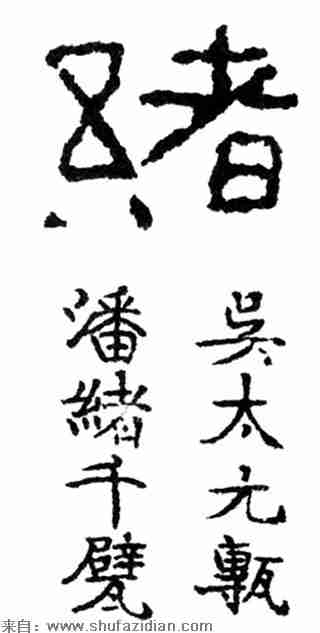 緒
吳太元甎
潘緒千甓
来自：www.shufazidian.com